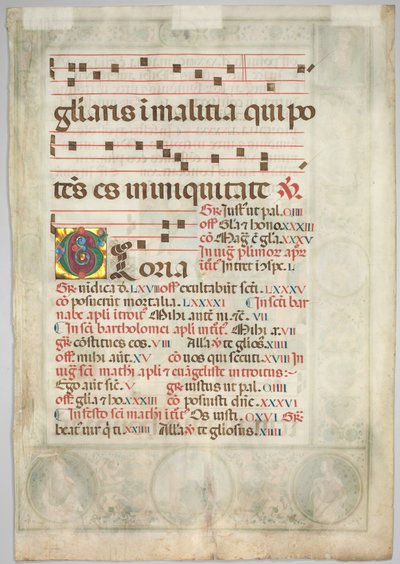 gliaris i malitia qui po
tēs es in iniquitate ℣.
Gr̄. Just̄ ut pal. CIIII
off̄ Gl̄a & hono. XXXIII
cō Maḡ ē gl̄a. XXXV
In uiḡ
īt̄ Intret ī ɔsp̄c. L
Gloria
Gr̄ uīdica d̄. LXVIII off̄ exultabūt sc̄i. LXXXV
cō posuerūt mortalia. LXXXXI ¶ In sc̄i bar
nabe apl̄i ītroit̄ Mihi autē ni. c̄. VII
¶ In sc̄i bartholomei apl̄i intr̄t. Mihi a. VII
gr̄ cōstitues eos. VIII Allā ℣ te glīos. XIIII
off̄ mihi aūt. XV cō uos qui secuti. XVIII In
uiḡ sc̄i mathi apl̄i & euāgeliste introitus:~
Ego aūt sic̄. V gr̄ iustus ut pal. CIIII
off̄ gl̄ia & ho. XXXIII cō posuisti dn̄e. XXXVI
¶ In festo sc̄i mathi īt̄r Os iusti. CXVI Gr̄
beat̄ uir q̄ ti. XXIIII Allā ℣ te gliosus. XIIII